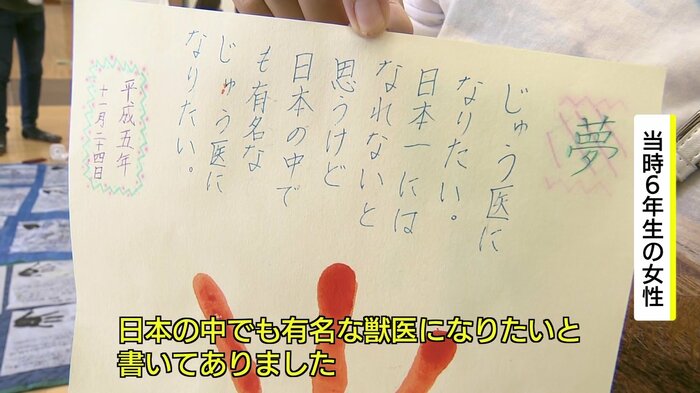 夢
じゅう医に
なりたい。
日本一には
なれないと
思うけど
日本の中で
も有名な
じゅう医に
なりたい。
平成五年
十一月二十四日
当時6年生の女性
日本の中でも有名な獣医になりたいと
書いてありました